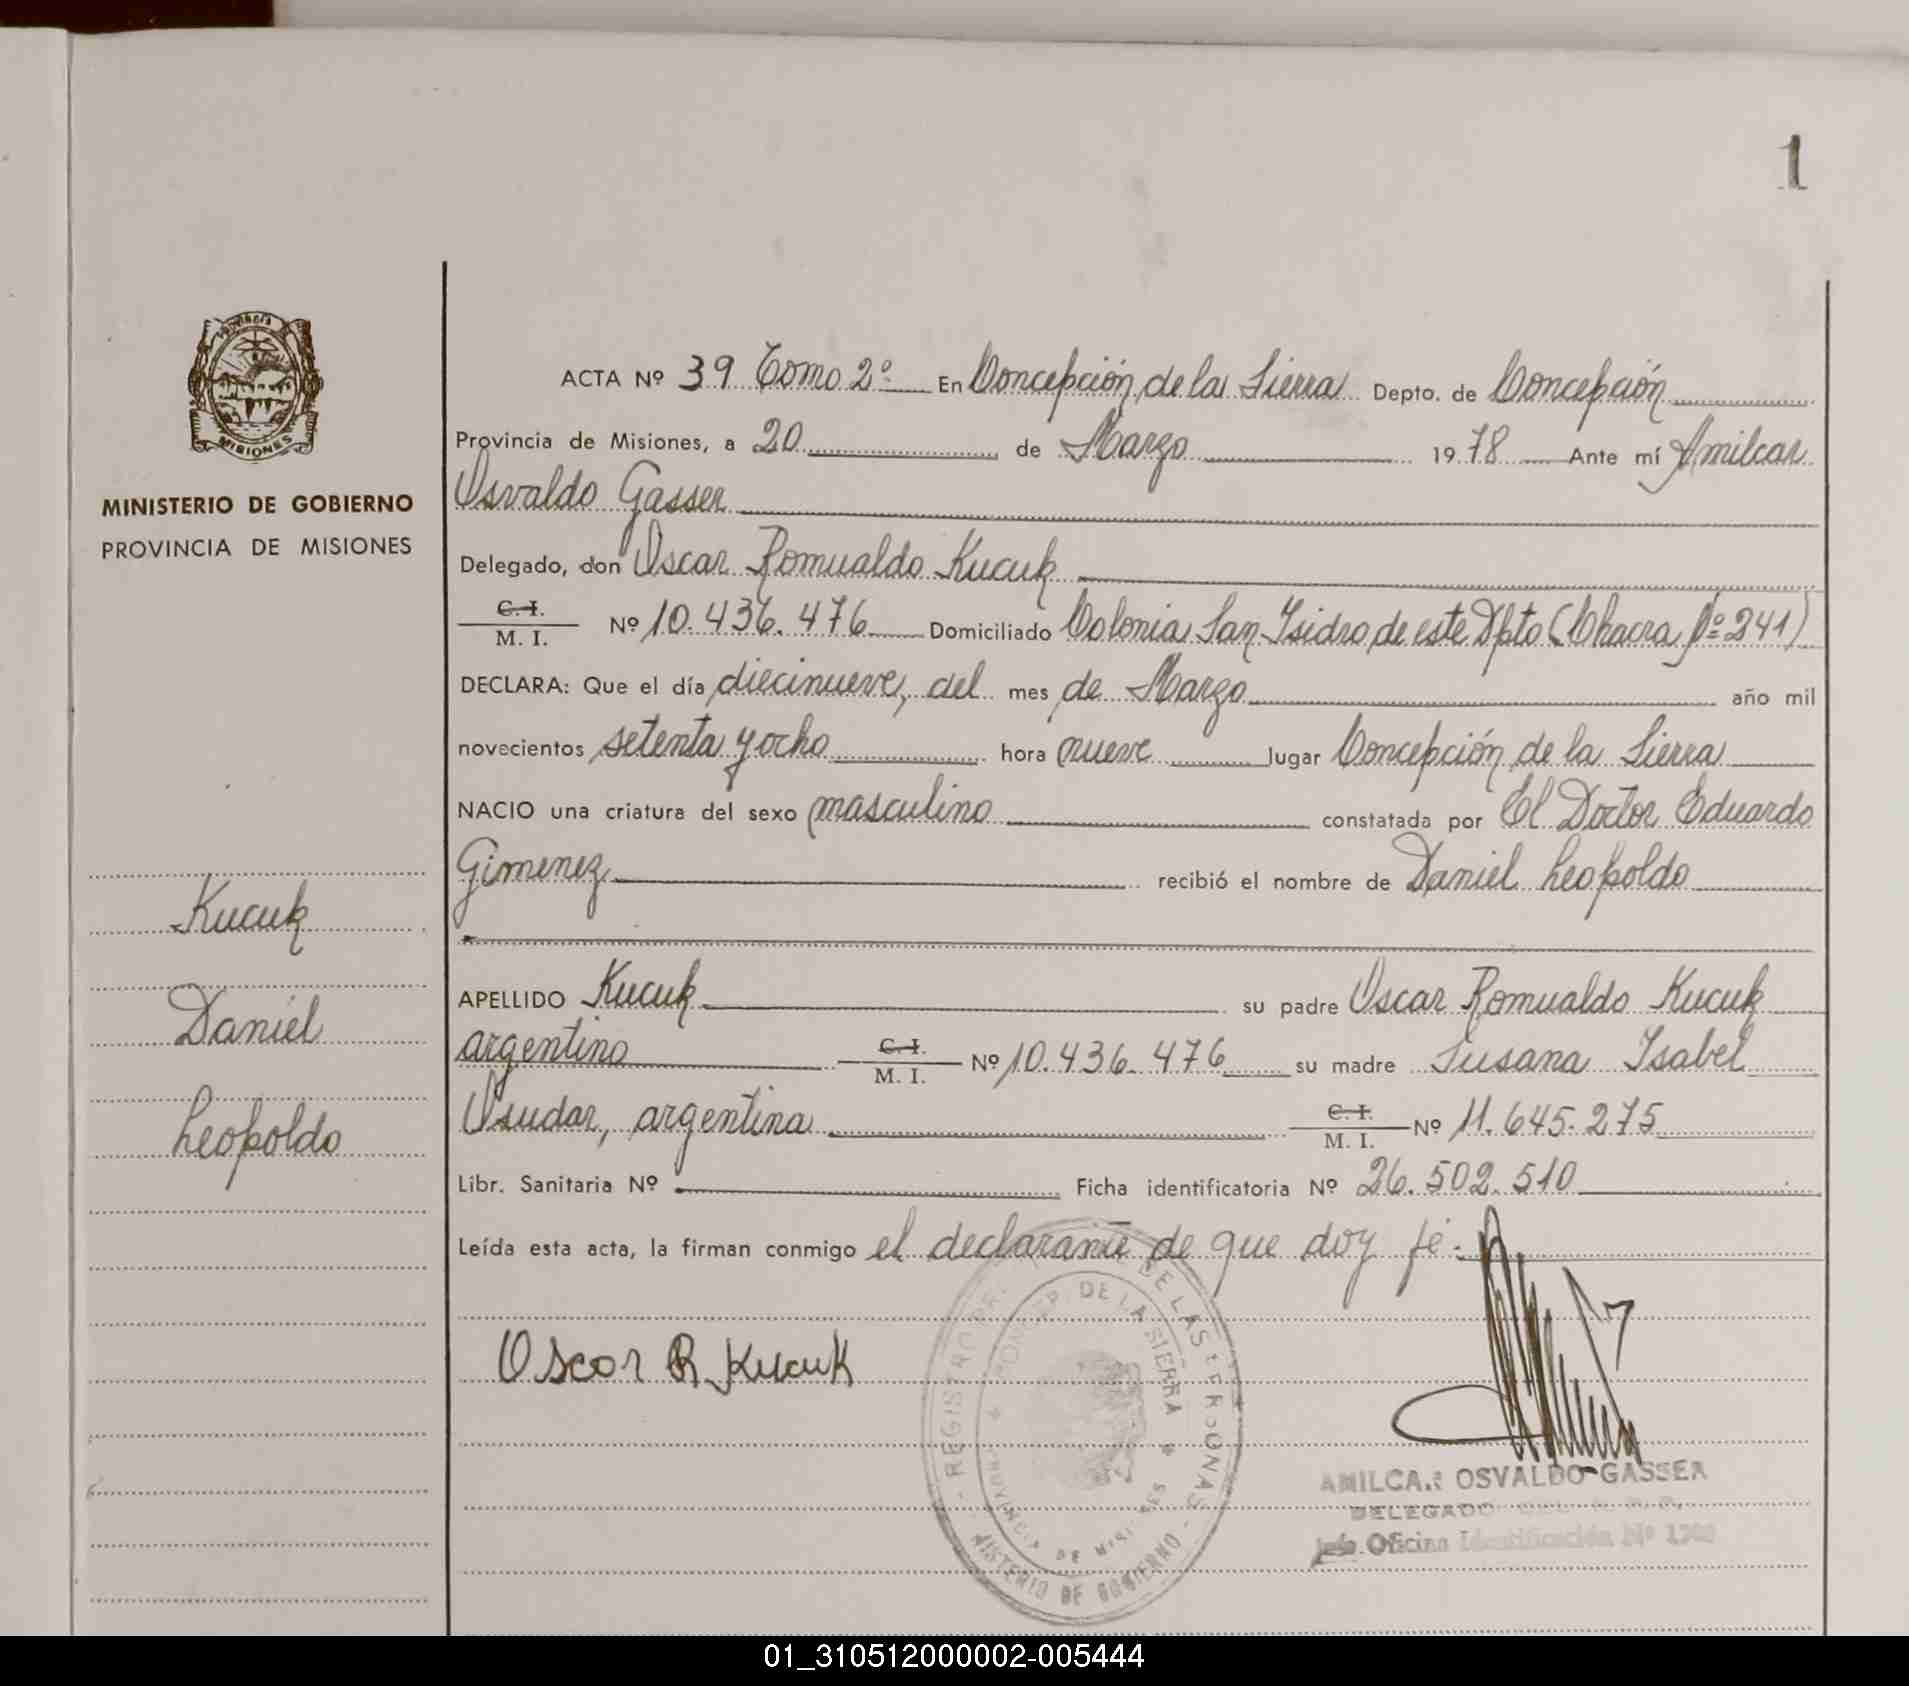 1
Provincia
MISIONES
MINISTERIO DE GOBIERNO
PROVINCIA DE MISIONES
Kucuk
Daniel
Leopoldo
ACTA Nº 39 Tomo 2º En Concepción de la Sierra Depto. de Concepción
Provincia de Misiones, a 20 de Marzo 1978 Ante mí Amilcar
Osvaldo Gasser
Delegado, don Oscar Romualdo Kucuk
C. I.
M. I. Nº 10.436.476 Domiciliado Colonia San Isidro de este Dpto (Chacra Nº 241)
DECLARA: Que el día diecinueve, del mes de Marzo año mil
novecientos setenta y ocho hora nueve lugar Concepción de la Sierra
NACIO una criatura del sexo masculino constatada por El Doctor Eduardo
Gimenez recibió el nombre de Daniel Leopoldo
APELLIDO Kucuk su padre Oscar Romualdo Kucuk
argentino C. I.
M. I. Nº 10.436.476 su madre Susana Isabel
Osudar, argentina C. I.
M. I. Nº 11.645.275
Libr. Sanitaria Nº Ficha identificatoria Nº 26.502.510
Leída esta acta, la firman conmigo el declarante de que doy fé.
Oscar R Kucuk
REGISTRO DE LAS PERSONAS
CONCEP. DE LA SIERRA
PROVINCIA DE MISIONES
MINISTERIO DE GOBIERNO
AMILCAR OSVALDO GASSER
DELEGADO
Jefe Oficina Identificación Nº
01_310512000002-005444